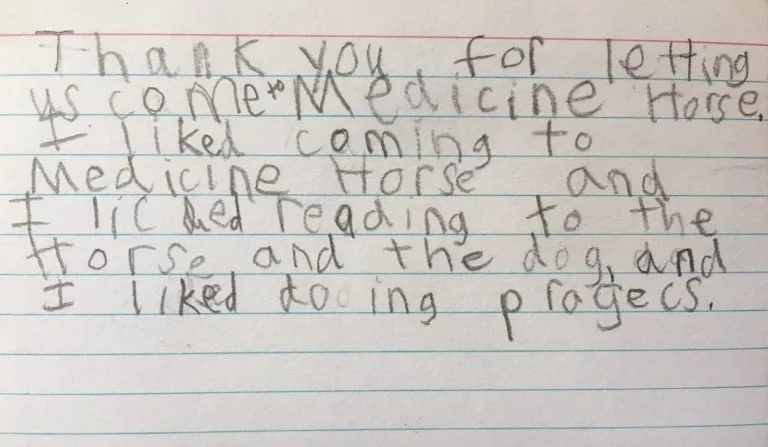 Thank you for letting
us come to Medicine Horse.
I liked coming to
Medicine Horse and
I licked reading to the
Horse and the dog, and
I liked dooing progecs.